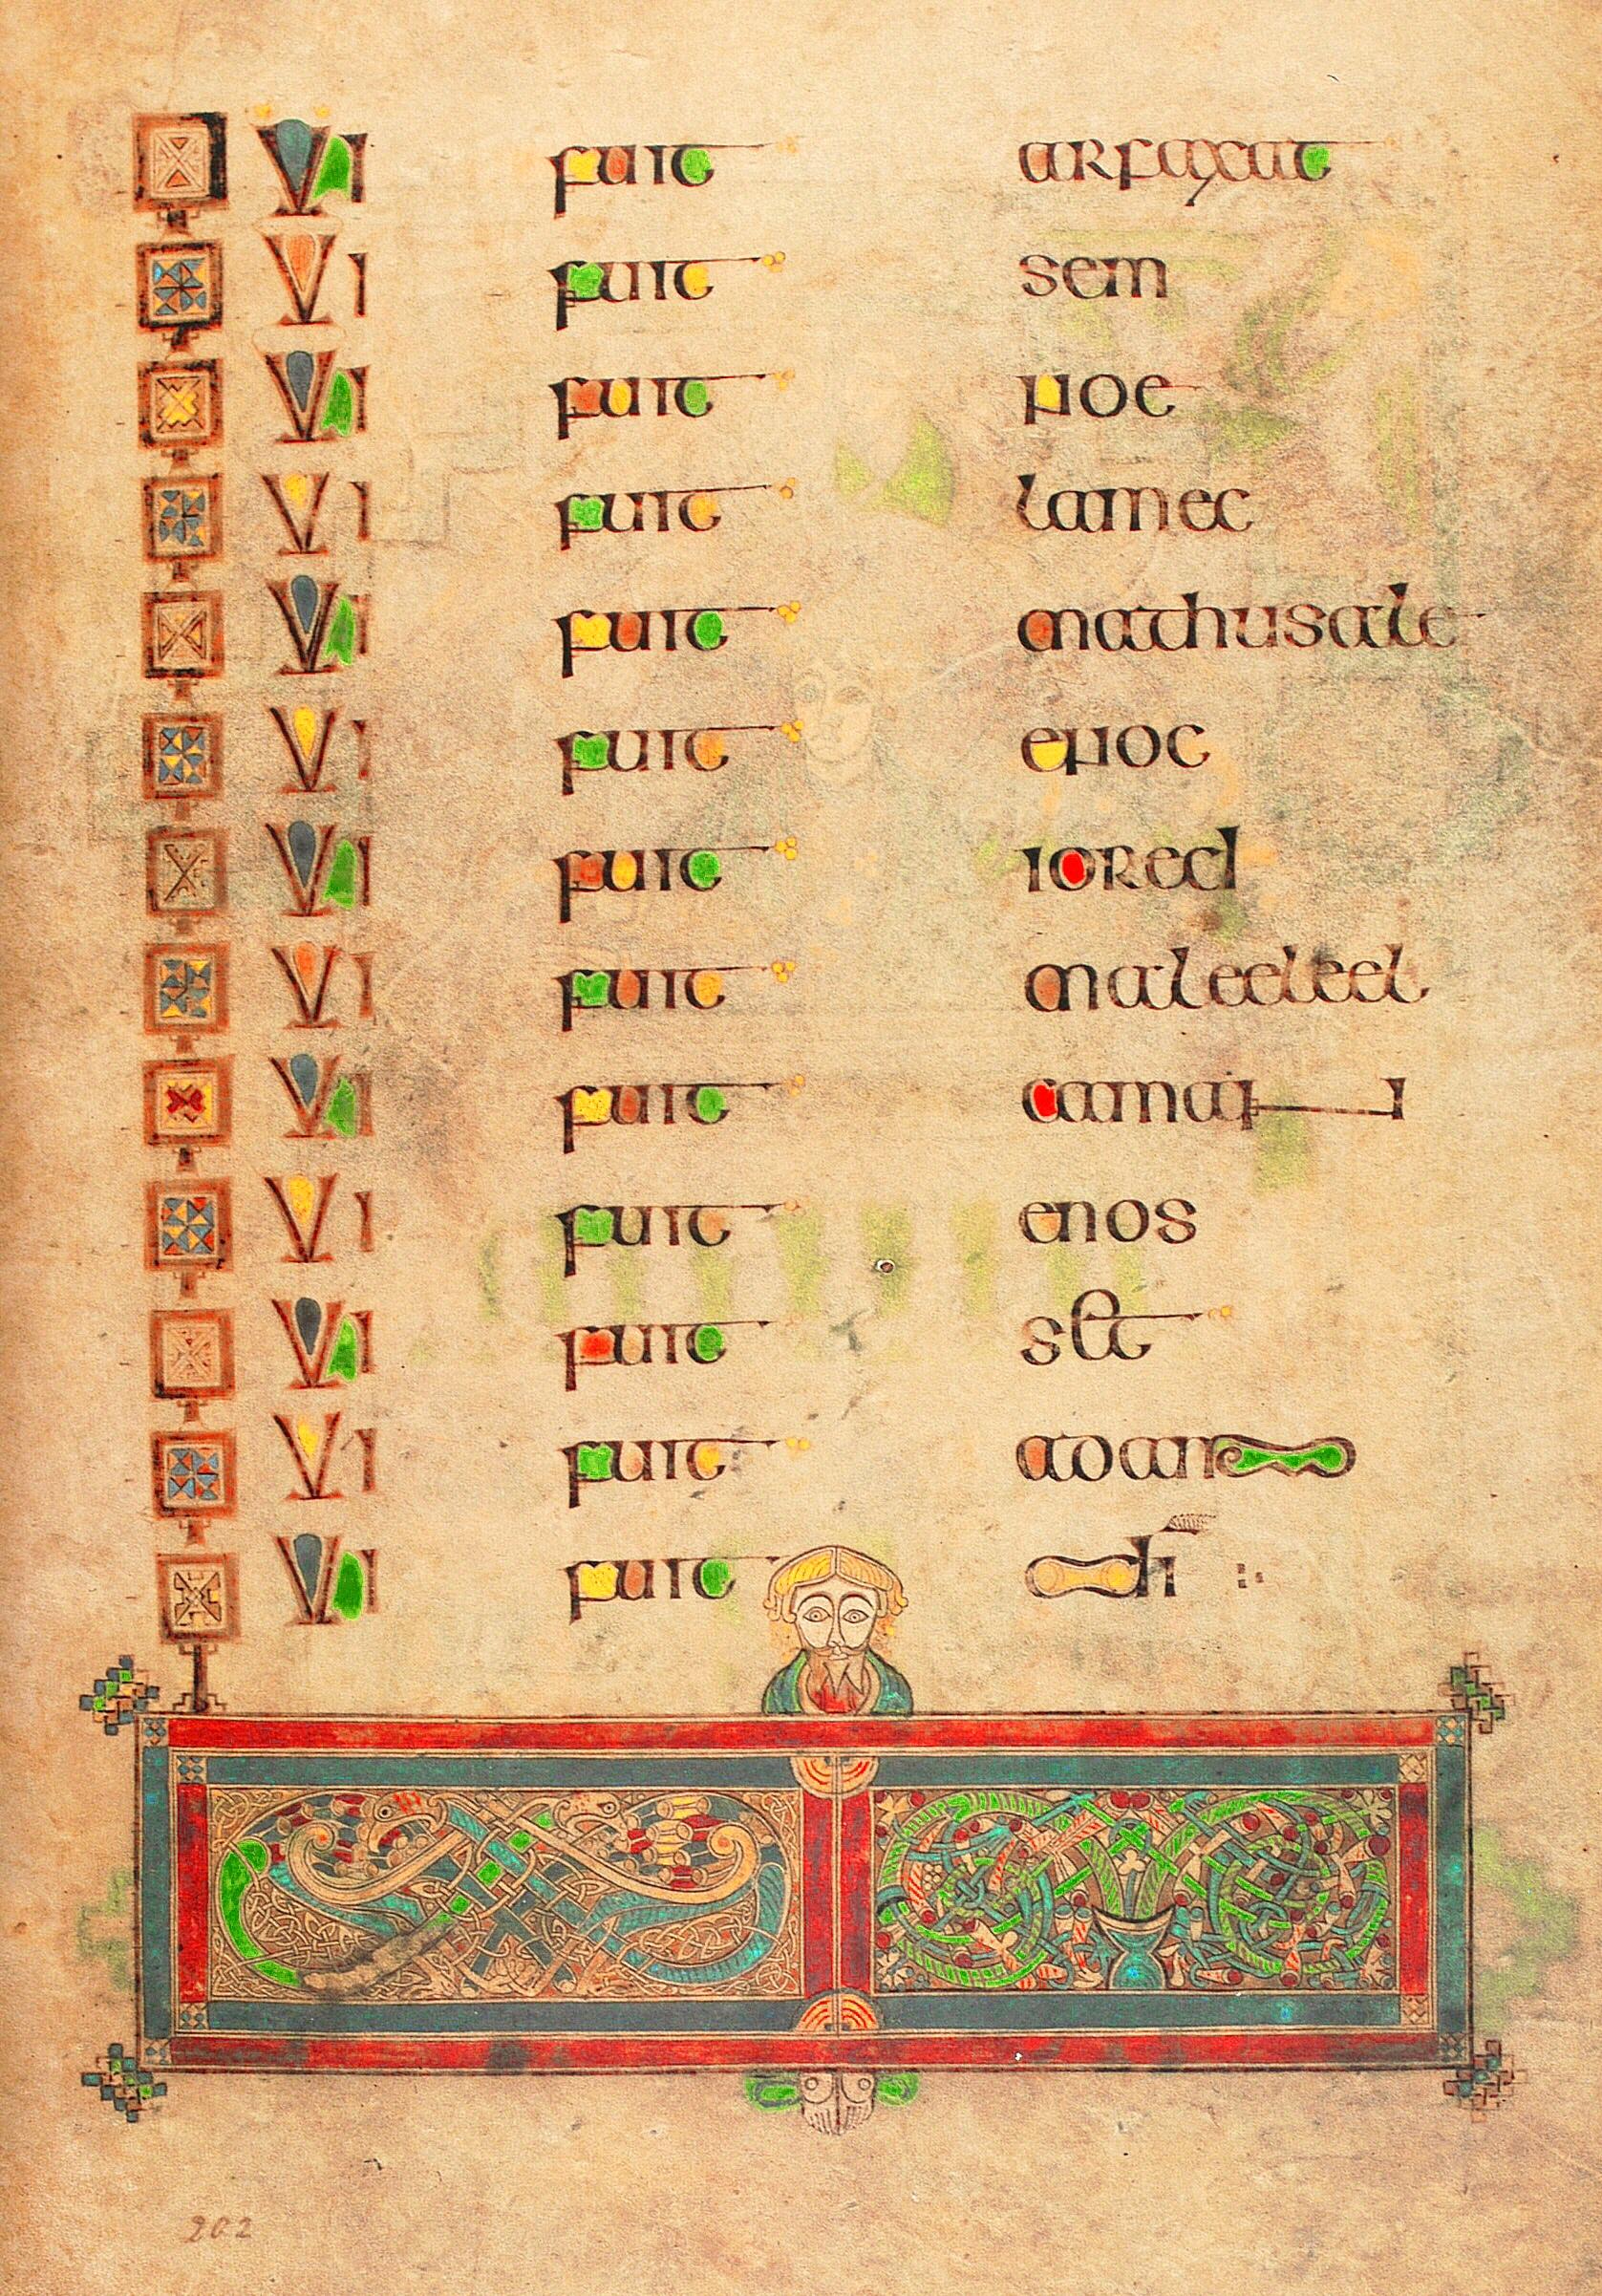 QVI fuit arfaxat
QVI fuit sem
QVI fuit noe
QVI fuit lamec
QVI fuit mathusale
QVI fuit enoc
QVI fuit iored
QVI fuit maleeleel
QVI fuit cainan
QVI fuit enos
QVI fuit set
QVI fuit adam
QVI fuit di
202